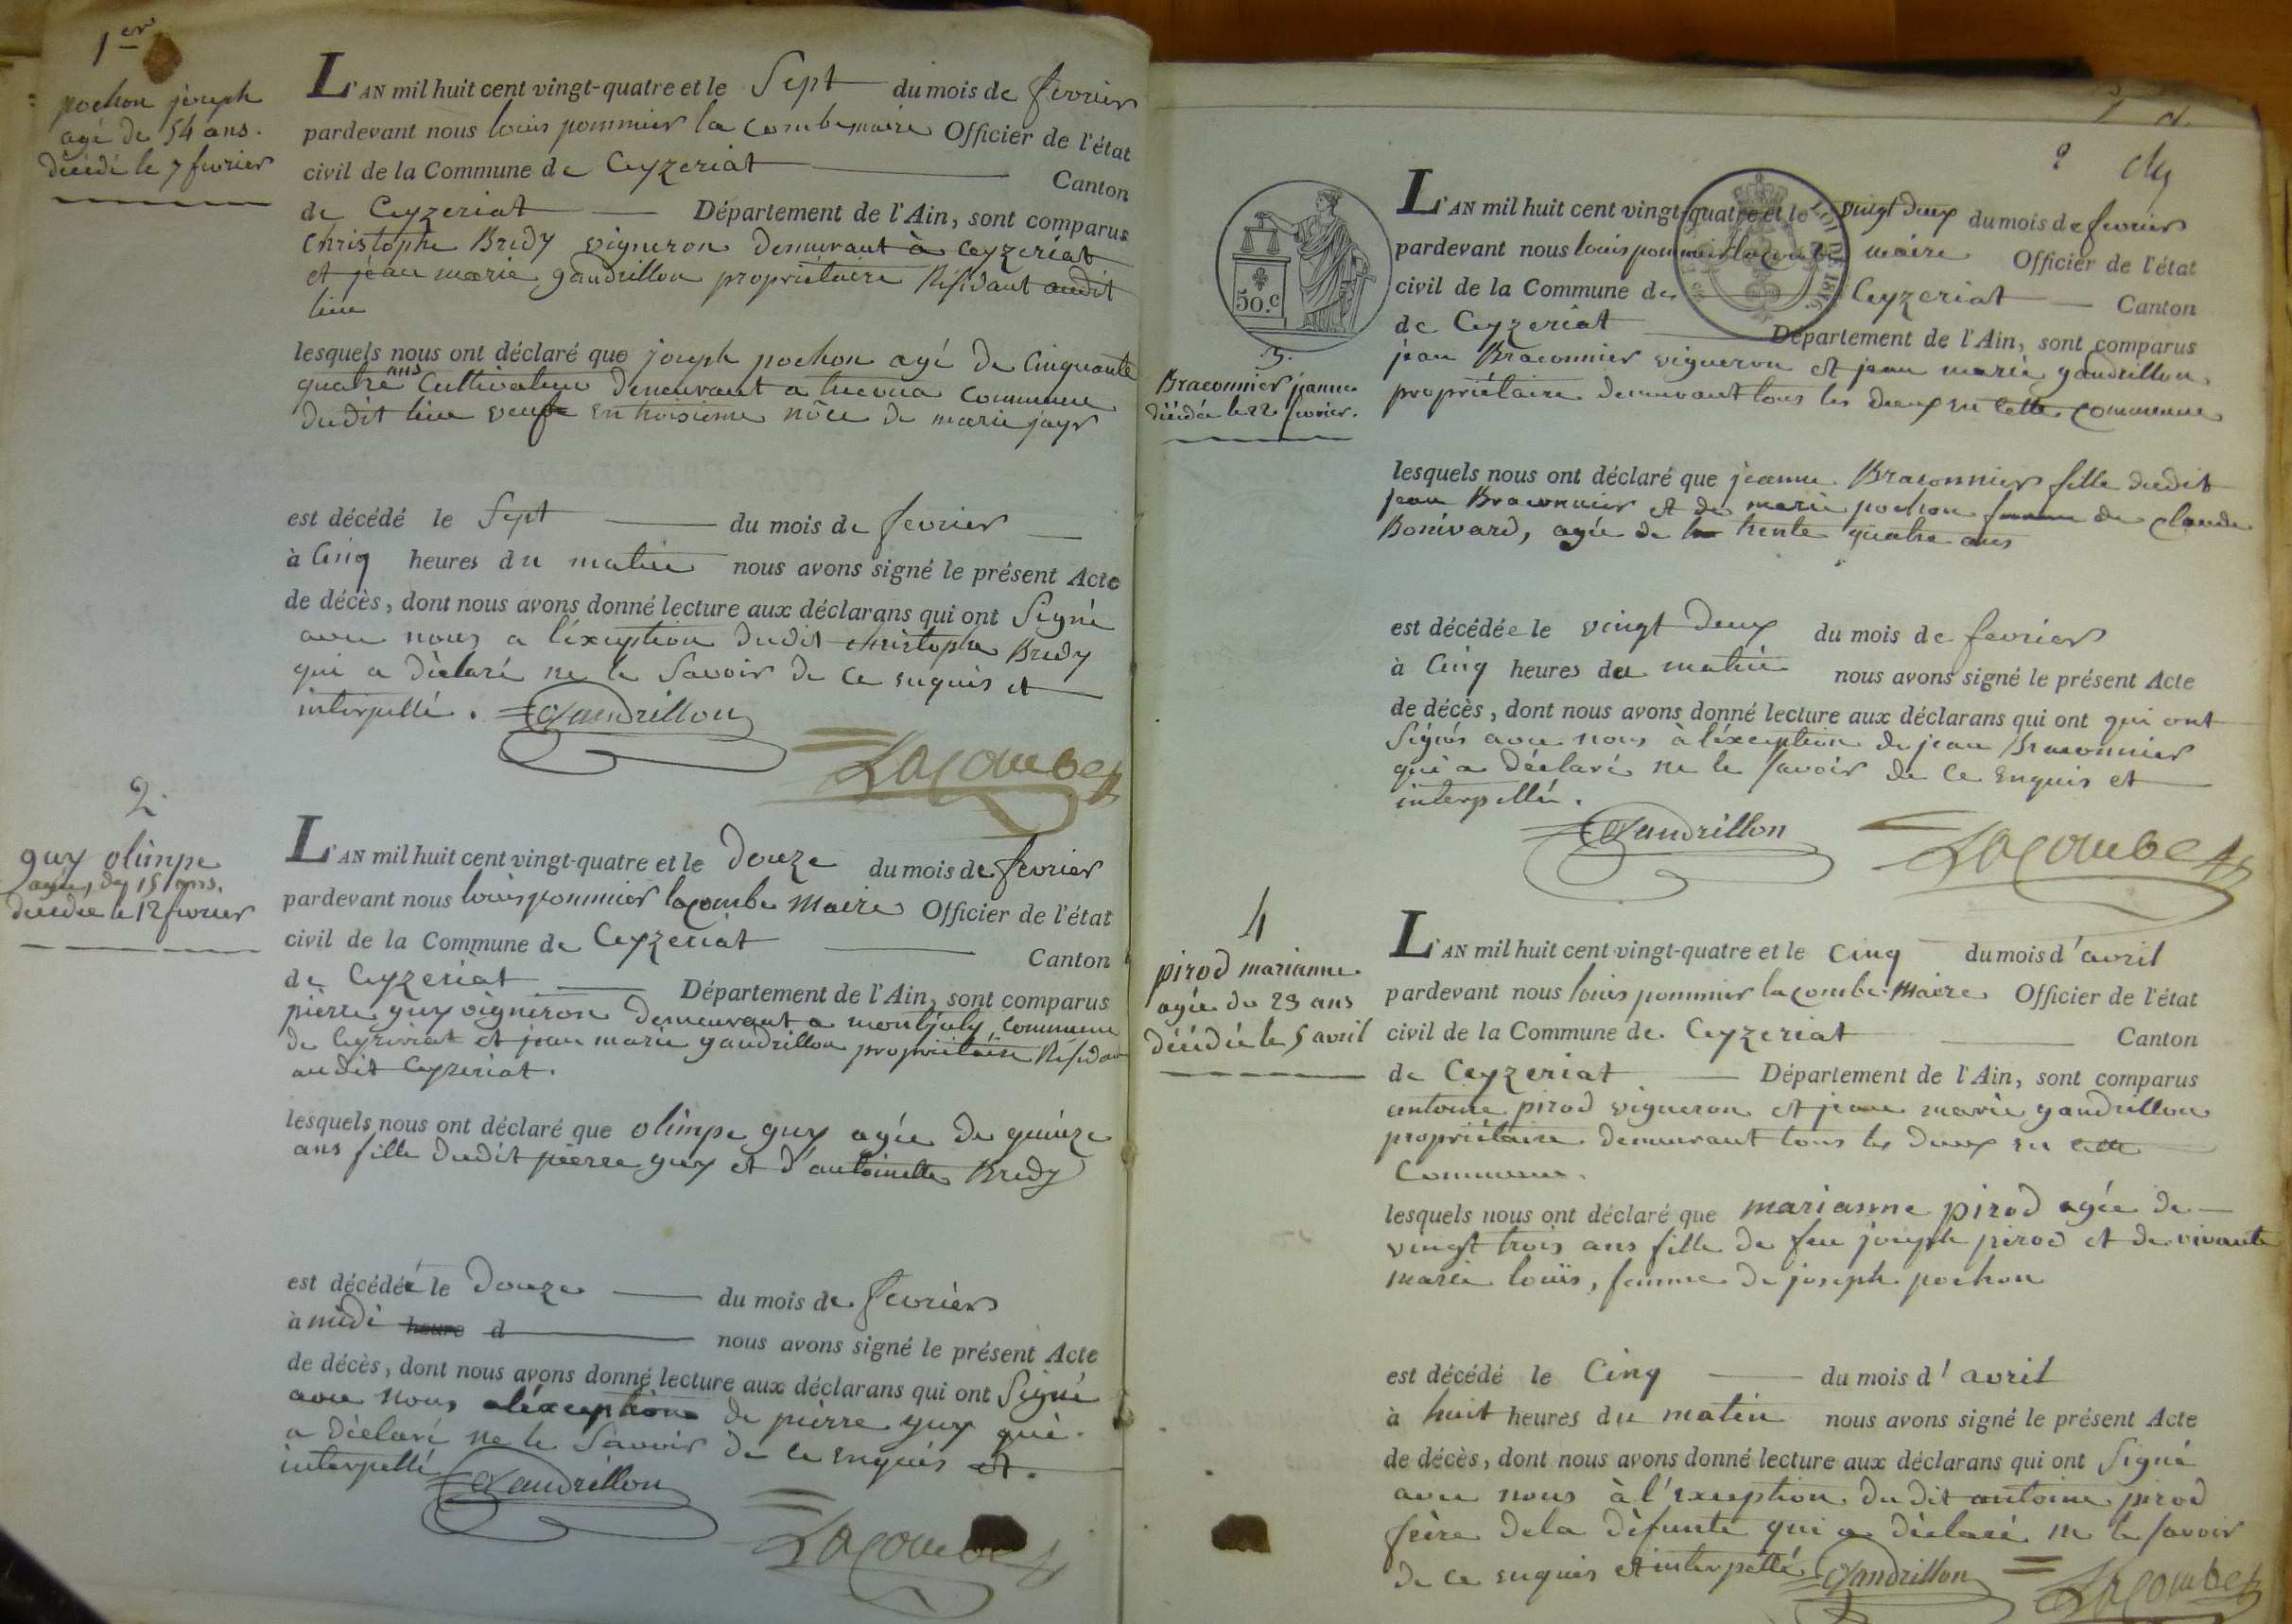 1er
pochon joseph
agé de 54 ans.
décédé le 7 fevrier
L'AN mil huit cent vingt-quatre et le Sept du mois de fevrier
pardevant nous louis pommier la combe maire Officier de l'état
civil de la Commune de Ceyzeriat Canton
de Ceyzeriat Département de l'Ain, sont comparus
Christophe Bredy vigneron demeurant à Ceyzeriat
et jean marie gandrillon propriétaire Résidant audit
lieu
lesquels nous ont déclaré que joseph pochon agé de Cinquante
quatre ans Cultivateur demeurant a commune
dudit lieu veuf en troisieme nôce de marie jayr
est décédé le Sept du mois de fevrier
à Cinq heures du matin nous avons signé le présent Acte
de décès, dont nous avons donné lecture aux déclarans qui ont Signé
avec nous a l'éxception dudit christophe Bredy
qui a déclaré ne le Savoir de ce enquis et
interpellé. Gandrillon
Lacombe
2.
guy olimpe
agée de 15 ans.
décédée le 12 fevrier
L'AN mil huit cent vingt-quatre et le douze du mois de fevrier
pardevant nous louis pommier lacombe Maire Officier de l'état
civil de la Commune de Ceyzeriat Canton
de Ceyzeriat Département de l'Ain, sont comparus
pierre guy vigneron demeurant a montjuly, commune
de Ceyzeriat et jean marie gandrillon propriétaire Résidant
audit Ceyzeriat.
lesquels nous ont déclaré que olimpe guy agée de quinze
ans fille dudit pierre guy et d'antoinette Bredy
est décédée le Douze du mois de fevrier
à midi heure d nous avons signé le présent Acte
de décès, dont nous avons donné lecture aux déclarans qui ont Signé
avec nous a l'éxception de pierre guy qui
a déclaré ne le Savoir de ce enquis et
interpellé Gandrillon
Lacombe
50.c
3.
Braconnier jeanne
décédée le 22 fevrier.
L'AN mil huit cent vingt-quatre et le vingt deux du mois de fevrier
pardevant nous louis pommier lacombe maire Officier de l'état
civil de la Commune de Ceyzeriat Canton
de Ceyzeriat Département de l'Ain, sont comparus
jean Braconnier vigneron et jean marie gandrillon
propriétaire demeurant tous les deux en cette commune
lesquels nous ont déclaré que jeanne Braconnier fille dudit
jean Braconnier et de marie pochon femme de claude
Bonivard, agée de trente quatre ans
est décédée le vingt deux du mois de fevrier
à Cinq heures du matin nous avons signé le présent Acte
de décès, dont nous avons donné lecture aux déclarans qui ont qui ont
Signés avec nous à l'éxception de jean Braconnier
qui a déclaré ne le savoir de ce enquis et
interpellé.
Gandrillon Lacombe
4
pirod marianne
agée de 23 ans
décédée le 5 avril
L'AN mil huit cent vingt-quatre et le Cinq du mois d'avril
pardevant nous louis pommier lacombe Maire Officier de l'état
civil de la Commune de Ceyzeriat Canton
de Ceyzeriat Département de l'Ain, sont comparus
antoine pirod vigneron et jean marie gandrillon
propriétaire demeurant tous les deux en cette
Commune.
lesquels nous ont déclaré que marianne pirod agée de
vingt trois ans fille de feu joseph pirod et de vivante
marie louis, femme de joseph pochon
est décédé le Cinq du mois d'avril
à huit heures du matin nous avons signé le présent Acte
de décès, dont nous avons donné lecture aux déclarans qui ont Signé
avec nous à l'exception du dit antoine pirod
frère de la défunte qui a déclaré ne le savoir
de ce enquis et interpellé Gandrillon Lacombe